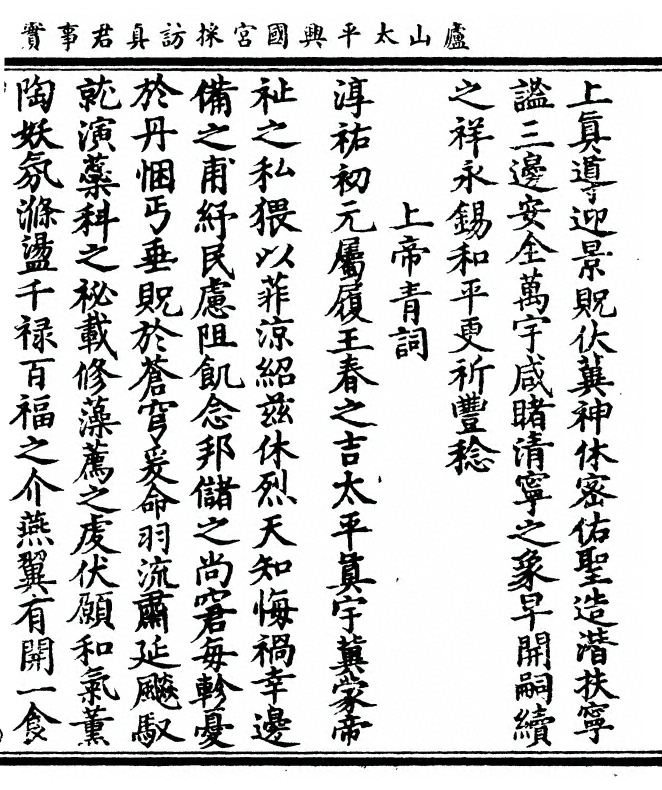 廬山太平興國宮採訪真君事實
上眞導迎景貺伏冀神休密佑聖造潛扶寧
謐三邊安全萬宇咸睹清寧之象早開嗣續
之祥永錫和平更祈豐稔
上帝青詞
淳祐初元屬履王春之吉太平眞宇冀蒙帝
祉之私猥以菲涼紹茲休烈天知悔禍幸邊
備之甫紓民慮阻飢念邦儲之尚窘每軫憂
於丹悃丐垂貺於蒼穹爰命羽流肅延飇馭
就演蘂科之祕載修藻薦之虔伏願和氣薰
陶妖氛滌盪千祿百福之介燕翼有開一食